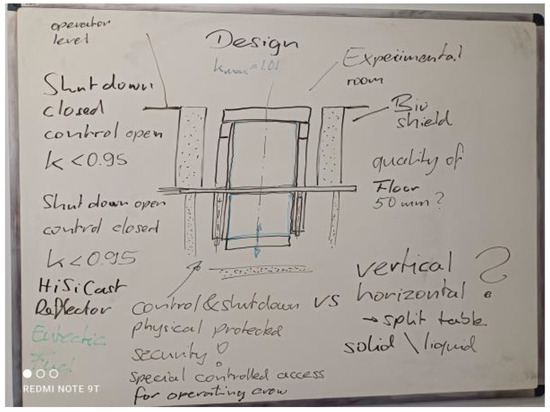 operator
level
Design
kmax = 1.01
Experimental
room
Shutdown
closed
control open
k < 0.95
Bio
shield
quality of
Floor
50 mm?
Shutdown open
control closed
k < 0.95
HiSiCast
Reflector
Eutectic
Fuel
control & shutdown
physical protected
security!
special controlled access
for operating crew
vs
vertical
horizontal ?
→ split table
solid \ liquid
REDMI NOTE 9T